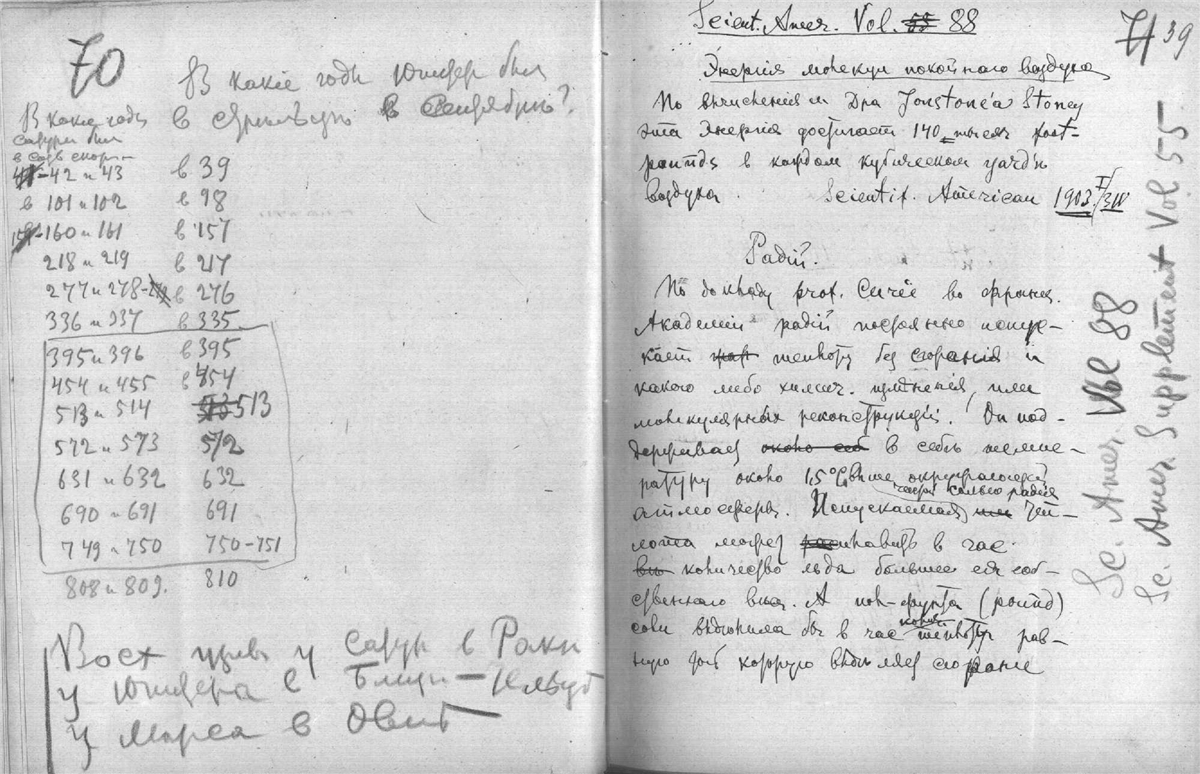 70
В какіе годы Юпитер был
в Стрельцѣ в Сентябрѣ?
В какіе годы
Сатурн был
в скорп-
42 и 43 в 39
в 101 и 102 в 98
160 и 161 в 157
218 и 219 в 217
277 и 278 в 276
336 и 337 в 335
395 и 396 в 395
454 и 455 в 454
513 и 514 513
572 и 573 572
631 и 632 632
690 и 691 691
749 и 750 750-751
808 и 809. 810
Вост у Сатурн в Раки
у Юпитера в Близн-
у Марса в Овнѣ
Scient. Amer. Vol. 55 88
71 39
Энергія молекул покойнаго воздуха
По вычисленіям Дра Jonstone'a Stoney
эта Энергія достигает 140 тысяч foot-
pounds в каждом кубическом yard'ѣ
воздуха. Scientif. American 1903 I/3
Радій.
По докладу prof. Curie во франц.
Академіи радій постоянно испус-
кает теплоту без сгоранія и
какого либо химич. измѣненія, или
молекулярных реконструкцій. Он под-
держивает около себя в себѣ темпе-
ратуру около 1,5°C выше окружающей
атмосферы. Испускаемая теп-
лота может в час
количество льда большее его соб-
ственнаго вѣса. А пол-фунта (pound)
соли выделила бы в час теплоту рав-
ную той которую выделяет сгораніе
Sc. Amer. Vol 88
Sc. Amer. Supplement Vol 55